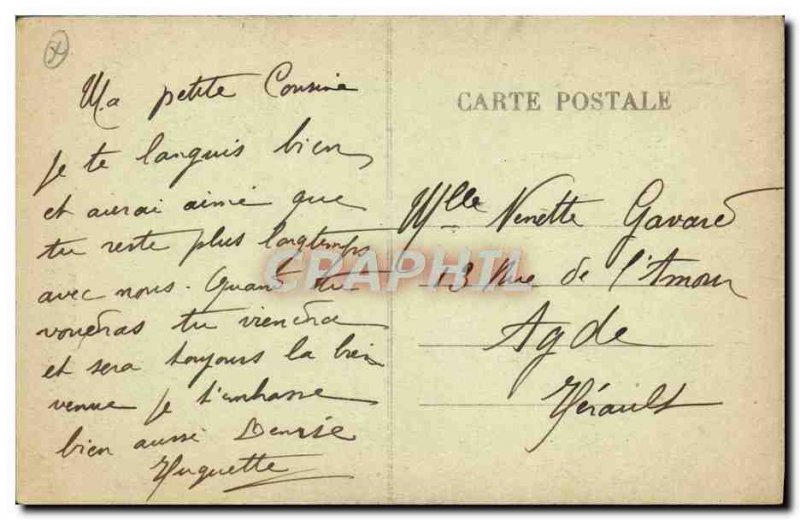 Ma petite Cousine
je te languis bien
et aurai aimé que
tu reste plus longtemps
avec nous. Quant tu
voudras tu viendra
et sera toujours la bien
venue je t'embrasse
bien aussi Denise
Huguette
CARTE POSTALE
Mlle Nenette Gavard
13 Rue de l'Amour
Agde
Hérault
CPAPHIL